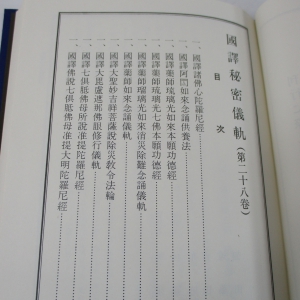 國譯秘密儀軌（第二十八卷）
目次
一、國譯諸佛心陀羅尼經
一、國譯阿閦如來念誦供養法
一、國譯藥師琉璃光如來本願功德經
一、國譯藥師琉璃光七佛本願功德經
一、國譯藥師琉璃光如來消災除難念誦儀軌
一、國譯藥師如來念誦儀軌
一、國譯大聖妙吉祥菩薩說除災教令法輪
一、國譯大毘盧遮那佛眼修行儀軌
一、國譯七俱胝佛母所說准提陀羅尼經
一、國譯佛說七俱胝佛母准提大明陀羅尼經